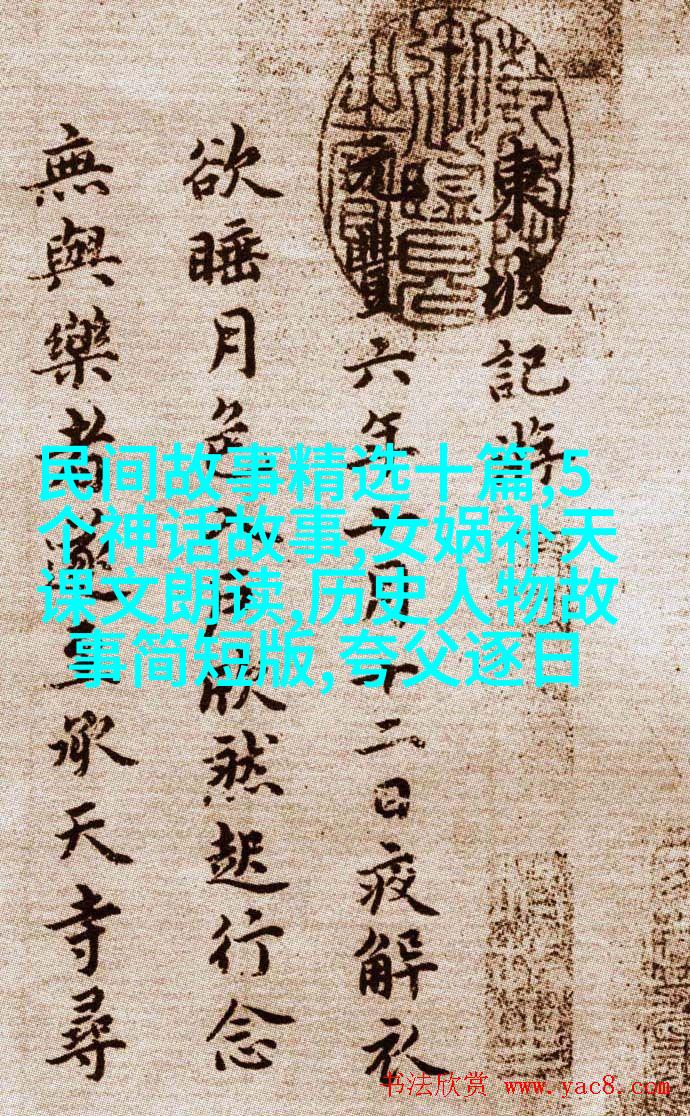 東坡記游
元豐六年十月十二日夜解衣
欲睡月色欣然起行念
無與樂者遂至承天寺尋
民间故事精选十篇,5
个神话故事,女娲补天
课文朗读,历史人物故
事简短版,夸父逐日
书法欣赏 www.yac8.com